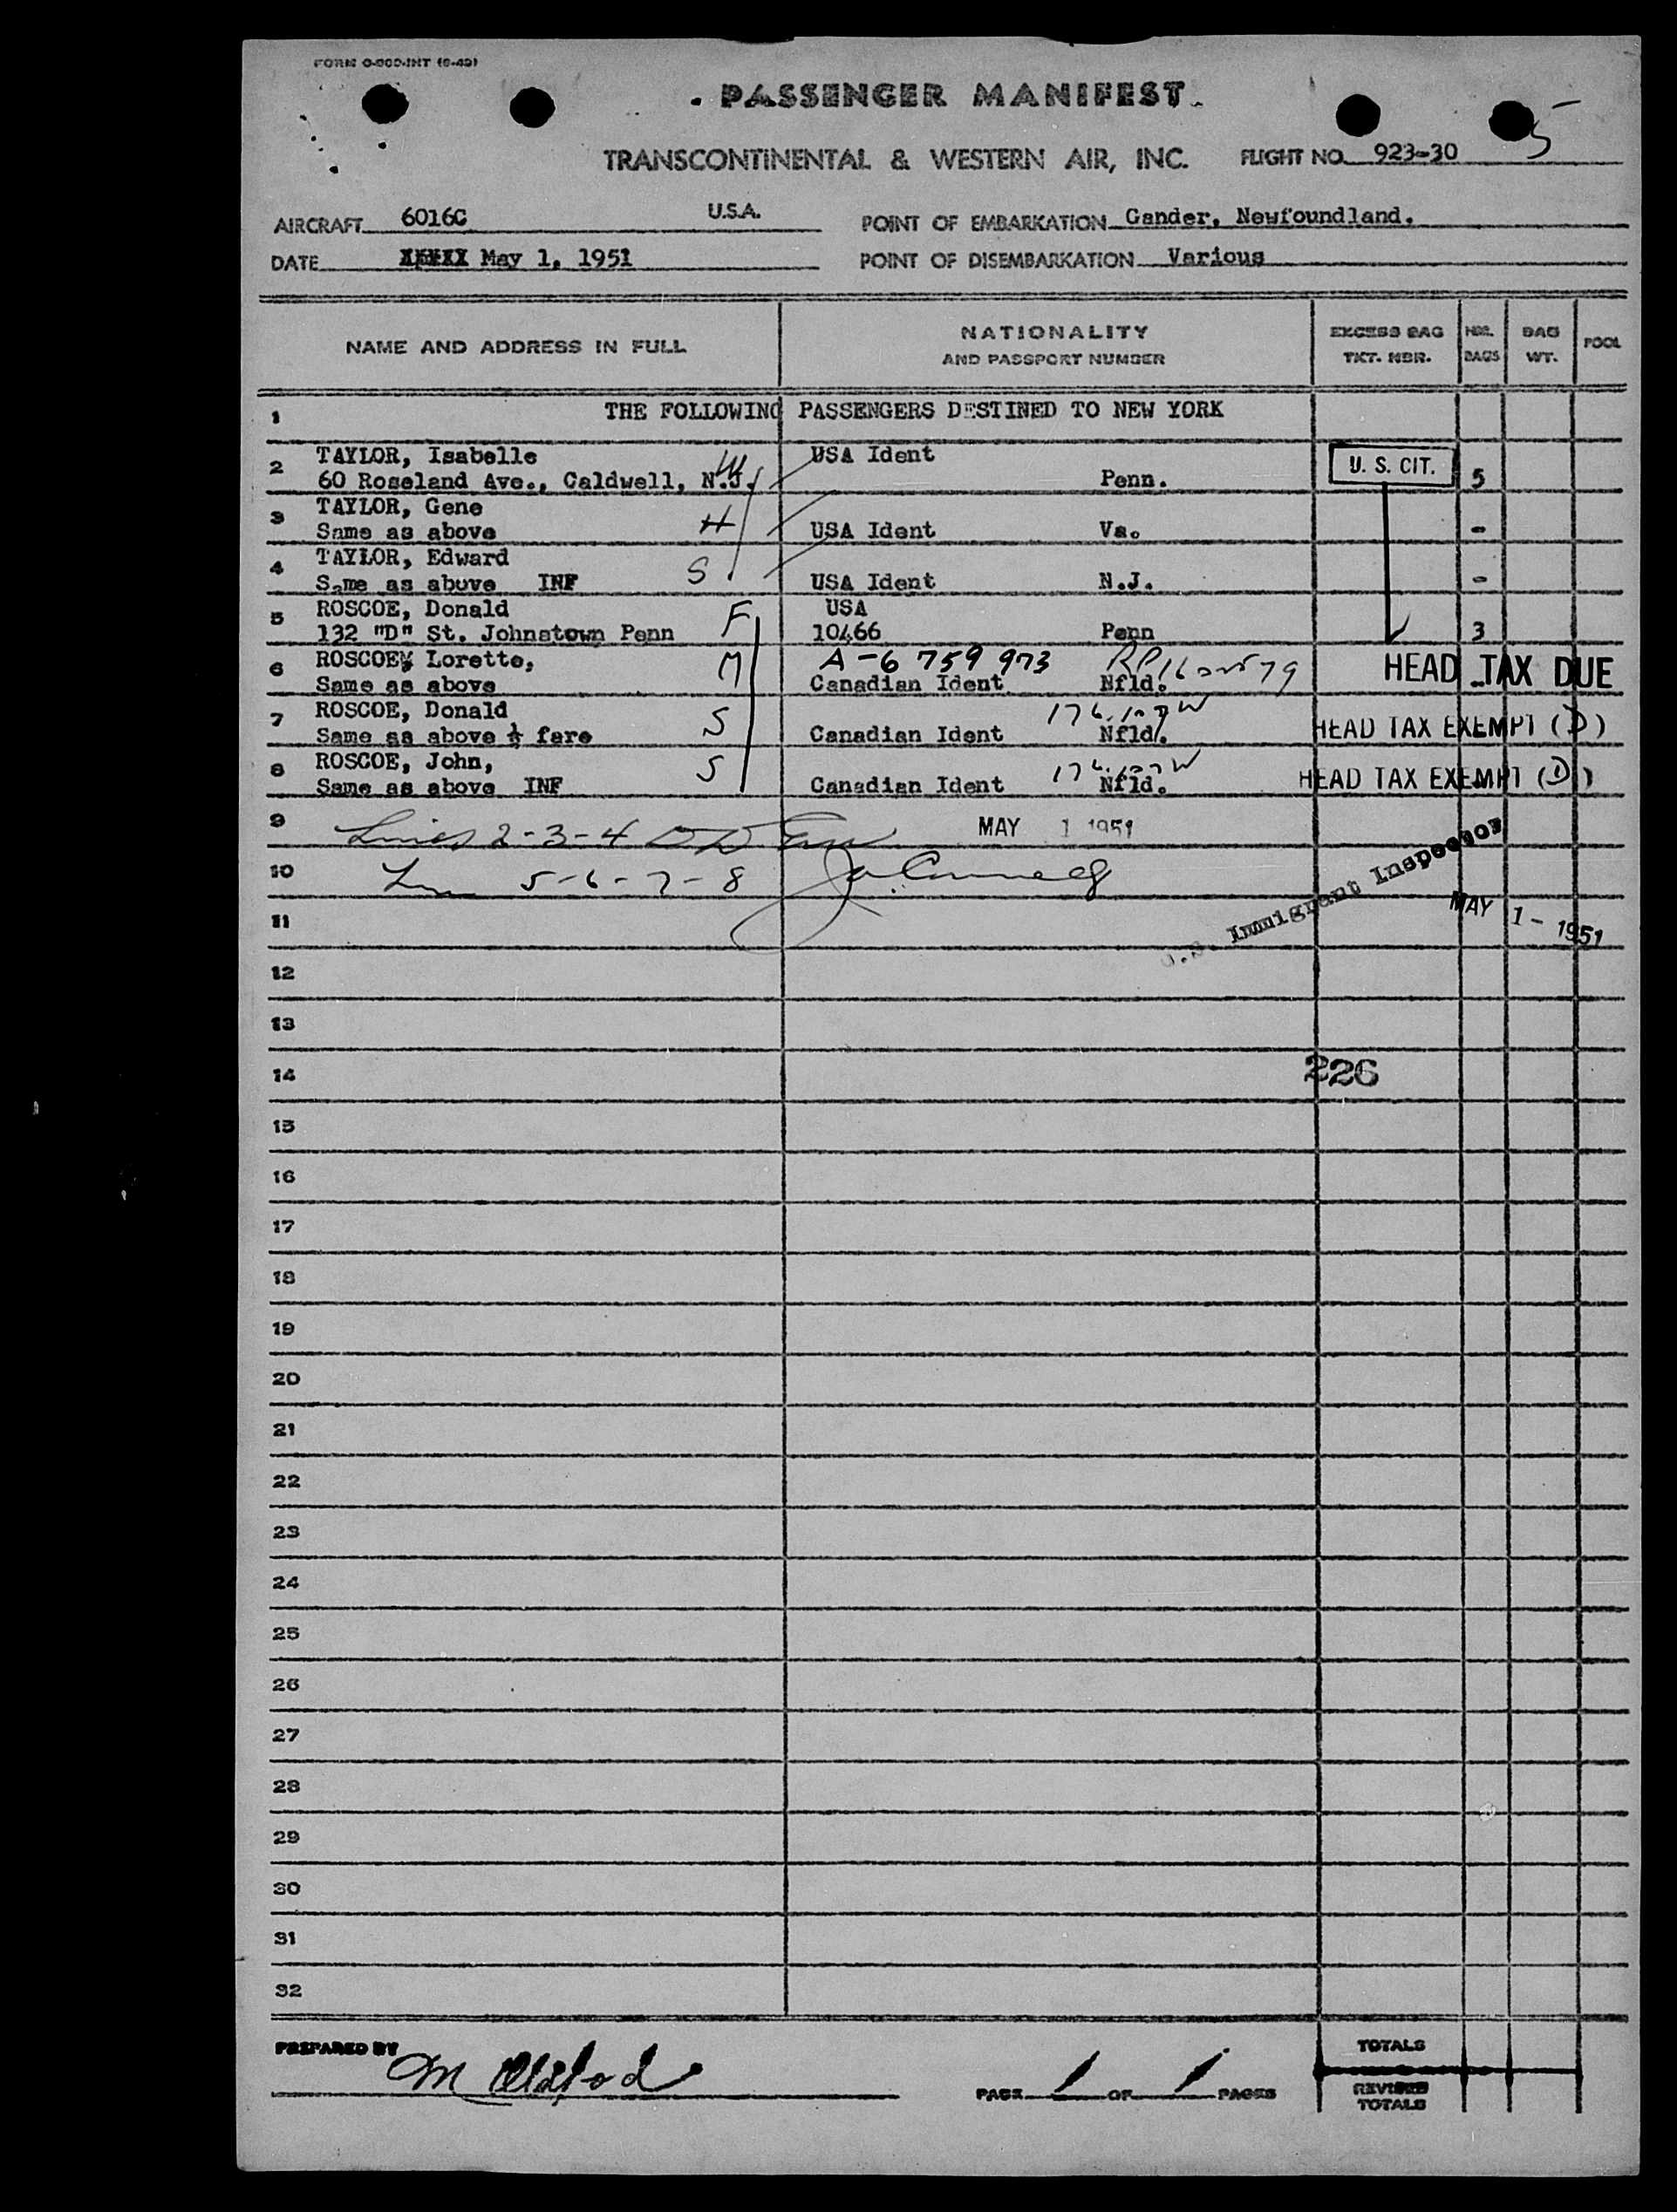 FORM O-
PASSENGER MANIFEST
TRANSCONTINENTAL & WESTERN AIR, INC. FLIGHT NO. 923-30 5
AIRCRAFT 6016C U.S.A. POINT OF EMBARKATION Gander, Newfoundland.
DATE May 1, 1951 POINT OF DISEMBARKATION Various
NAME AND ADDRESS IN FULL NATIONALITY AND PASSPORT NUMBER EXCESS BAG TKT. NBR. NBR. BAGS BAG WT. POOL
1 THE FOLLOWING PASSENGERS DESTINED TO NEW YORK
2 TAYLOR, Isabelle W USA Ident U. S. CIT.
60 Roseland Ave., Caldwell, N.J. Penn. 5
3 TAYLOR, Gene
Same as above H USA Ident Va. -
4 TAYLOR, Edward
Same as above INF S USA Ident N.J. -
5 ROSCOE, Donald F USA
132 "D" St. Johnstown Penn 10466 Penn 3
6 ROSCOE, Lorette, M A-6 759 973 HEAD TAX DUE
Same as above Canadian Ident Nfld.
7 ROSCOE, Donald S
Same as above ½ fare Canadian Ident Nfld. HEAD TAX EXEMPT (D)
8 ROSCOE, John, S
Same as above INF Canadian Ident Nfld. HEAD TAX EXEMPT (D)
9 Lines 2-3-4 MAY 1 1951
10 5-6-7-8
U.S. Immigrant Inspector
11 MAY 1 - 1951
12
13
14 226
15
16
17
18
19
20
21
22
23
24
25
26
27
28
29
30
31
32
PREPARED BY M PAGE 1 OF 1 PAGES TOTALS
REVISED TOTALS